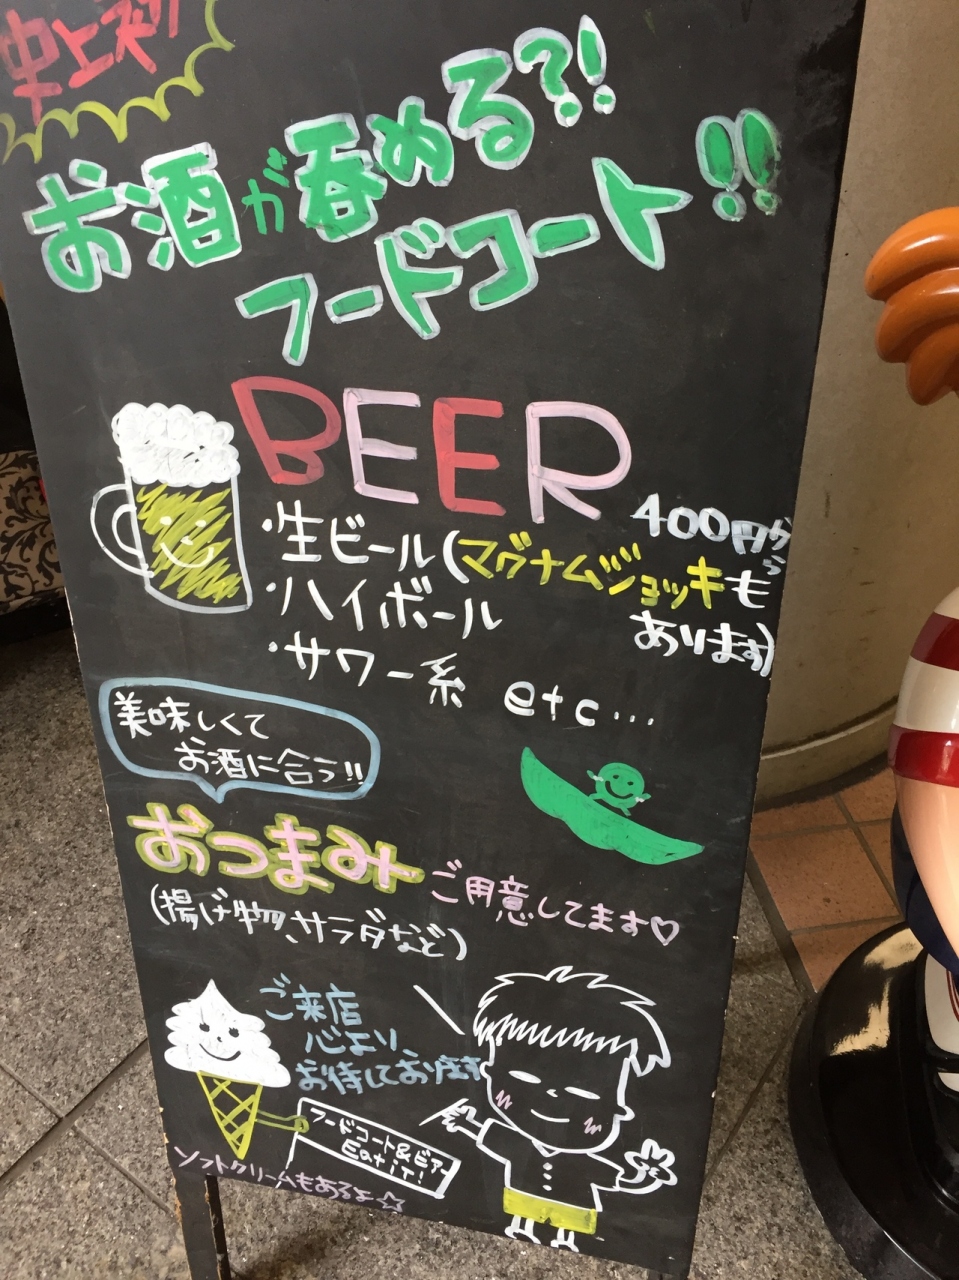 史上初
お酒が呑める?!
フードコート!!
BEER
400円から
・生ビール(マグナムジョッキも
あります)
・ハイボール
・サワー系 etc…
美味しくて
お酒に合う!!
おつまみ ご用意してます♡
(揚げ物、サラダなど)
ご来店
心より、
お待しております
フードコート&ビアー
Eat it!
ソフトクリームもあるよ☆